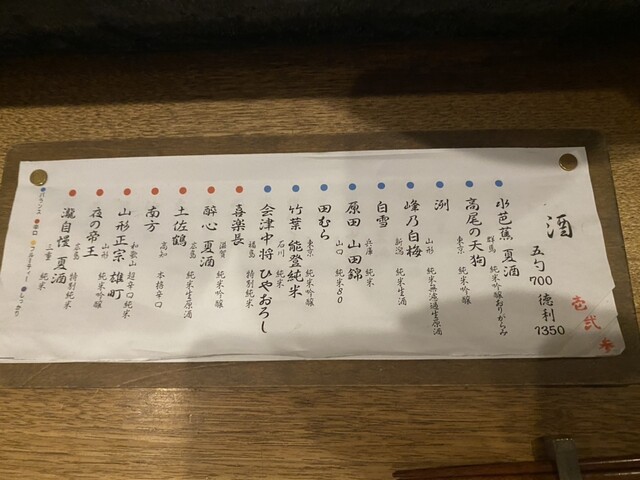 酒
五勺
700
徳利
1350
壱 弐 参
水芭蕉 夏酒
群馬 純米吟醸おりがらみ
高尾の天狗
東京 純米吟醸
洌
山形 純米無濾過生原酒
峰乃白梅
新潟 純米生酒
白雪
兵庫 純米
原田 山田錦
山口 純米80
田むら
東京 純米吟醸
竹葉 能登純米
石川 純米
会津中将 ひやおろし
福島 特別純米
喜楽長
滋賀 純米吟醸
酔心 夏酒
広島 純米生原酒
土佐鶴
高知 本格辛口
南方
和歌山 超辛口純米
山形正宗 雄町
山形 純米吟醸
夜の帝王
広島 特別純米
瀧自慢 夏酒
三重 純米
バランス 辛口 フルーティー しっかり